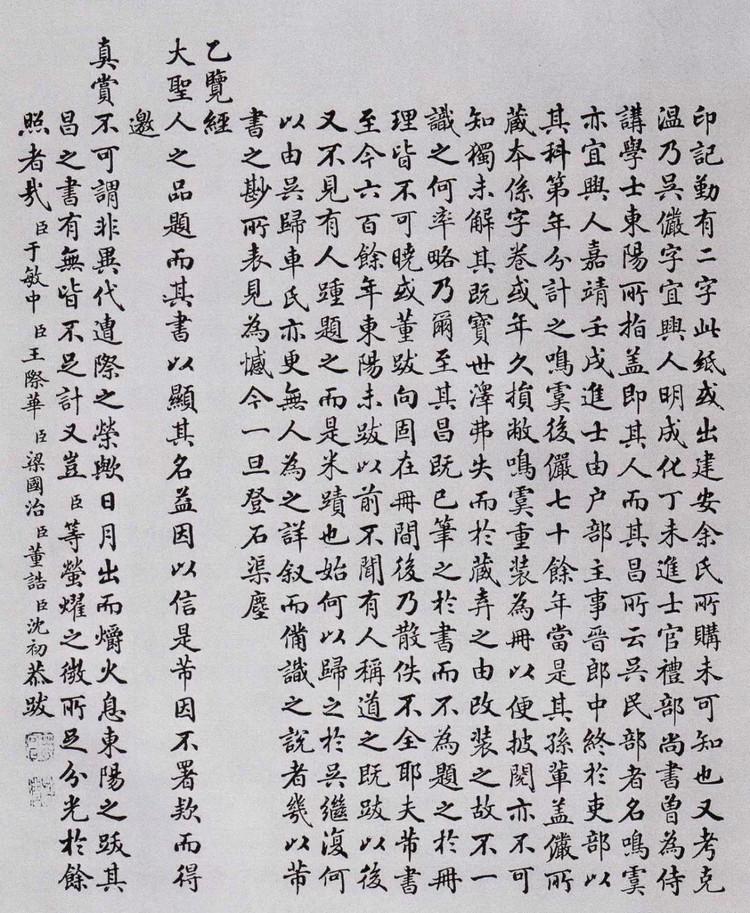 印記勤有二字此紙或出建安余氏所購未可知也又考克
温乃吴儼字宜興人明成化丁未進士官禮部尚書曾為侍
講學士東陽所指盖即其人而其昌所云吴民部者名鳴虞
亦宜興人嘉靖壬戌進士由户部主事晋郎中終於吏部以
其科第年分計之鳴虞後儼七十餘年當是其孫輩盖儼所
藏本係字卷或年久損敝鳴虞重装為冊以便披閱亦不可
知獨未解其既寶世澤弗失而於藏弆之由改装之故不一
識之何率略乃爾至其昌既已筆之於書而不為題之於冊
理皆不可曉或董跋向固在冊間後乃散佚不全耶夫芾書
至今六百餘年東陽未跋以前不聞有人稱道之既跋以後
又不見有人踵題之而是米蹟也始何以歸之於吴繼復何
以由吴歸車氏亦更無人為之詳叙而備識之説者幾以芾
書之尠所表見為憾今一旦登石渠塵
乙覽經
大聖人之品題而其書以顯其名益因以信是芾因不署款而得
邀
真賞不可謂非異代遭際之榮歟日月出而爝火息東陽之跋其
昌之書有無皆不足計又豈臣等螢耀之微所足分光於餘
照者哉 臣于敏中 臣王際華 臣梁國治 臣董誥 臣沈初恭跋